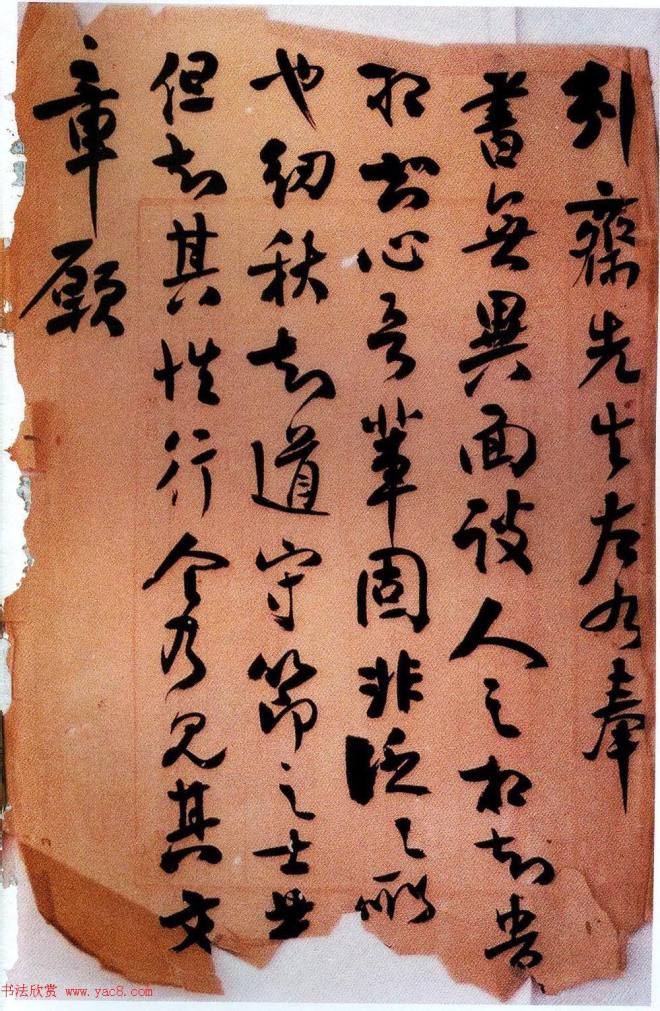 引齋先生左右奉
書無異面談人之相知貴
相知心吾輩固非泛泛所
也紉秋知道守節之士畏
但知其性行今乃見其文
章願
书法欣赏 www.yac8.com